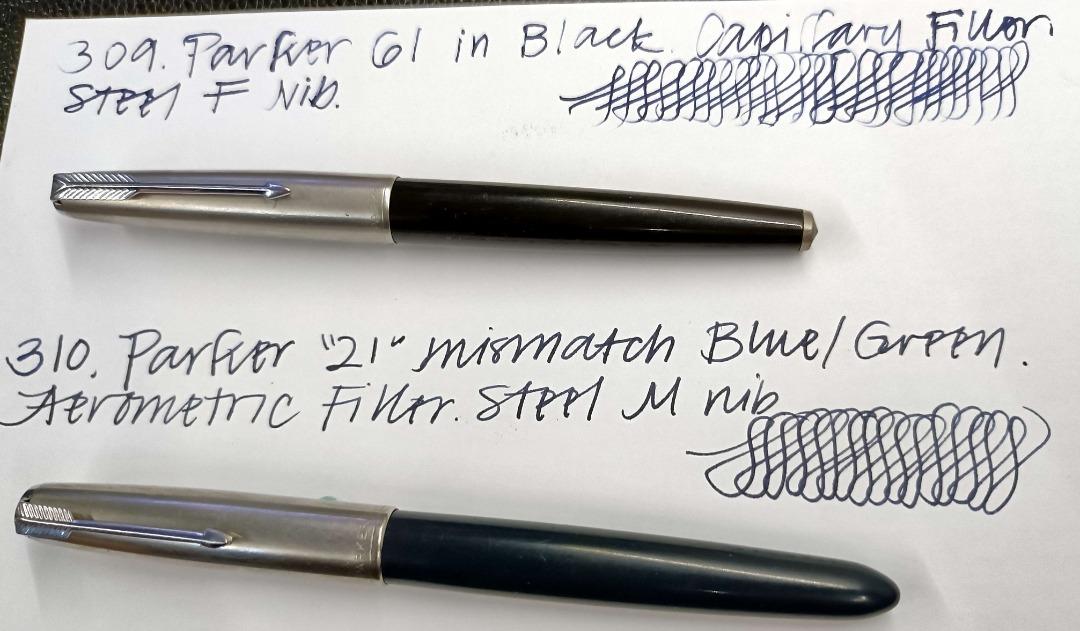 309. Parker 61 in Black. Capillary Filler.
Steel F Nib.
310. Parker "21" mismatch Blue/Green.
Aerometric Filler. Steel M nib